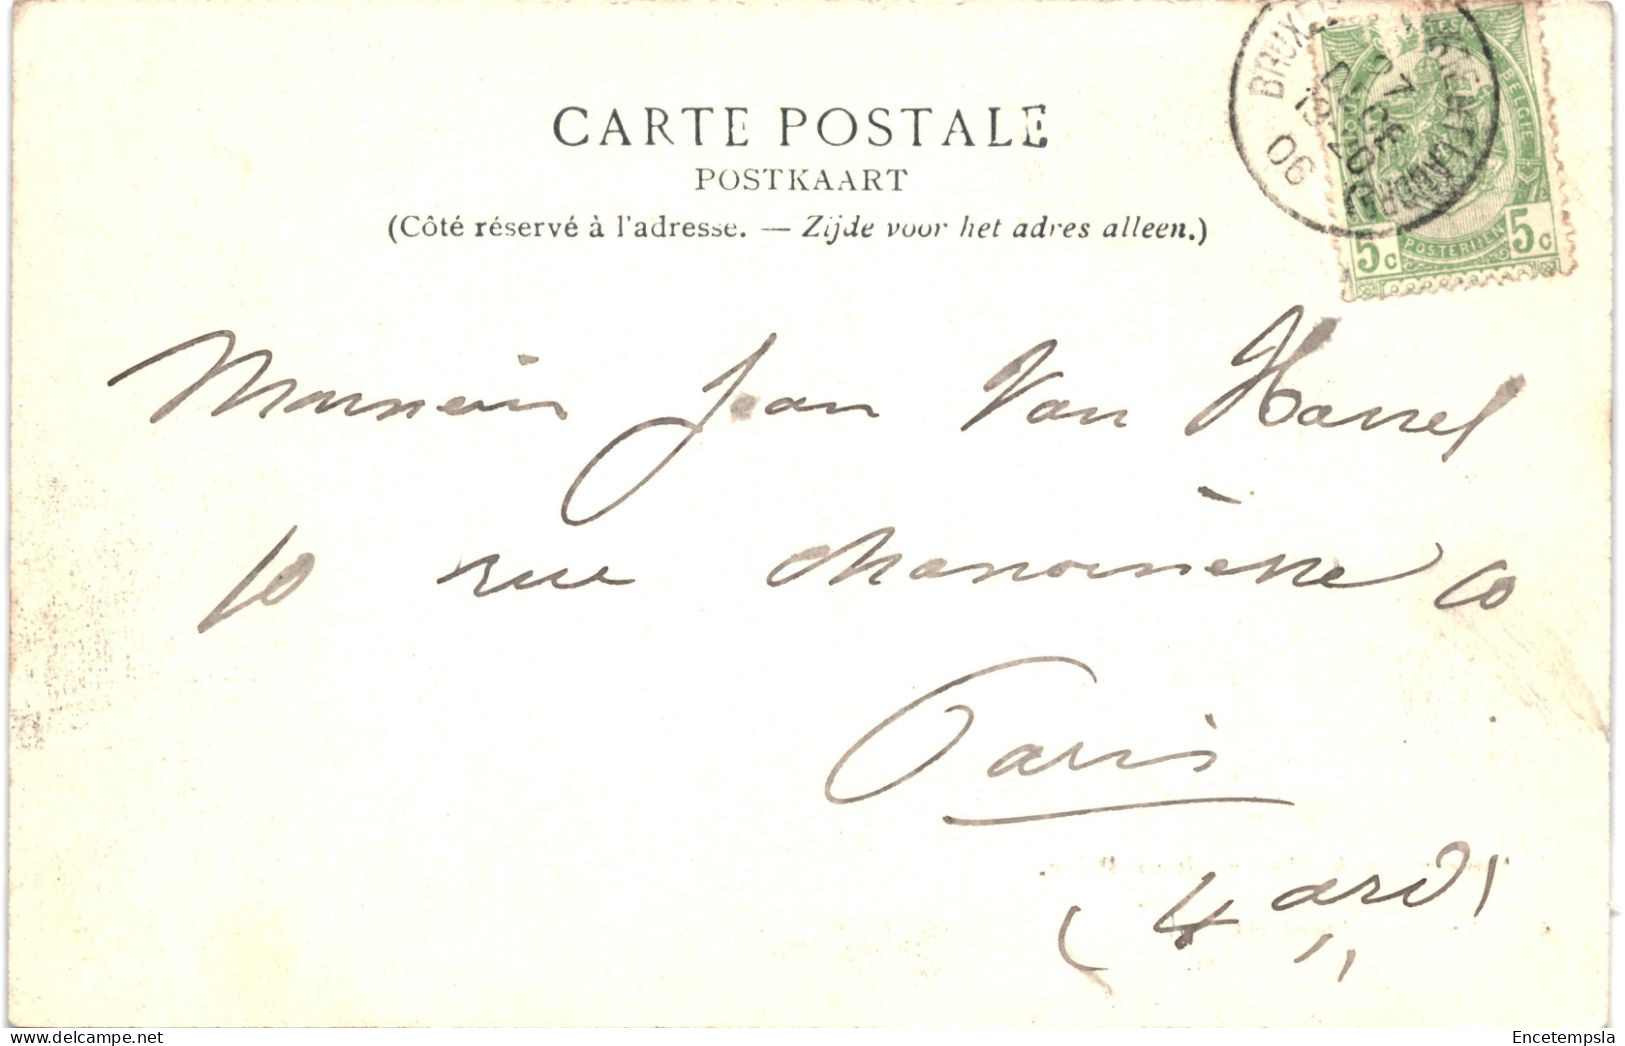 CARTE POSTALE
POSTKAART
(Côté réservé à l'adresse. — Zijde voor het adres alleen.)
BRUXEL
27
DÉCE
20
06
BELGIE
5c POSTERIJEN 5c
Monsieur Jean Van Hassel
10 rue Chanoinesse 10
Paris
(4 ard)
Encetempsla